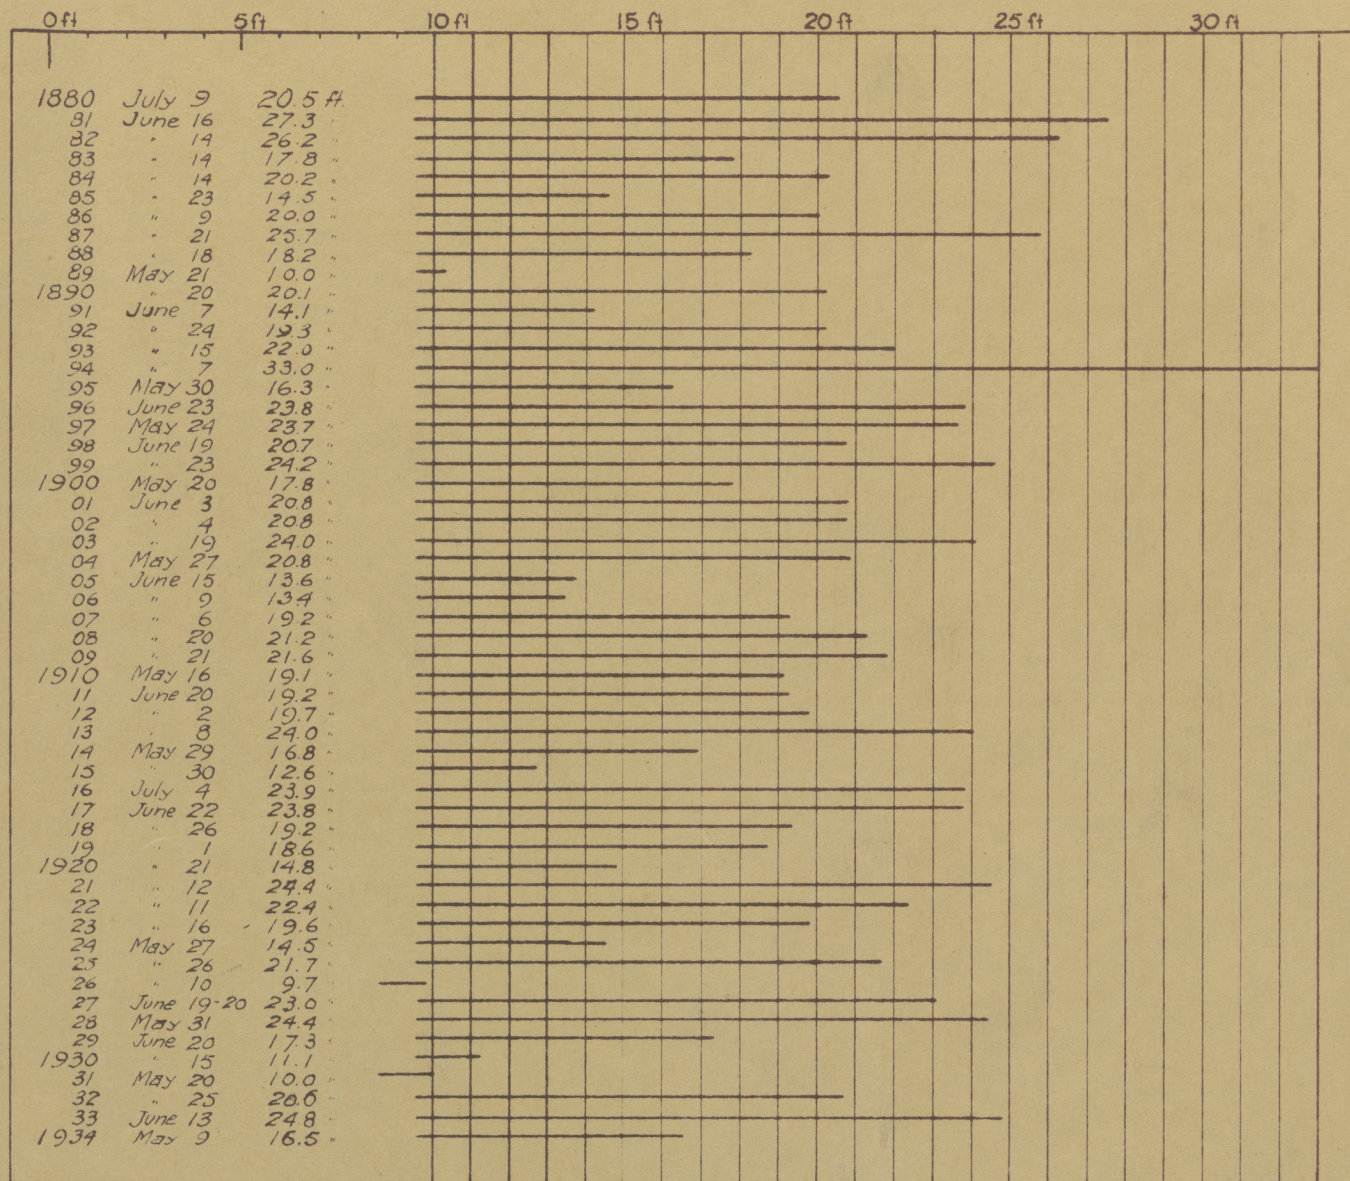 0 ft 5 ft 10 ft 15 ft 20 ft 25 ft 30 ft
1880 July 9 20.5 ft.
81 June 16 27.3 "
82 " 14 26.2 "
83 " 14 17.8 "
84 " 14 20.2 "
85 " 23 14.5 "
86 " 9 20.0 "
87 " 21 25.7 "
88 " 18 18.2 "
89 May 21 10.0 "
1890 " 20 20.1 "
91 June 7 14.1 "
92 " 24 19.3 "
93 " 15 22.0 "
94 " 7 33.0 "
95 May 30 16.3 "
96 June 23 23.8 "
97 May 24 23.7 "
98 June 19 20.7 "
99 " 23 24.2 "
1900 May 20 17.8 "
01 June 3 20.8 "
02 " 4 20.8 "
03 " 19 24.0 "
04 May 27 20.8 "
05 June 15 13.6 "
06 " 9 13.4 "
07 " 6 19.2 "
08 " 20 21.2 "
09 " 21 21.6 "
1910 May 16 19.1 "
11 June 20 19.2 "
12 " 2 19.7 "
13 " 8 24.0 "
14 May 29 16.8 "
15 " 30 12.6 "
16 July 4 23.9 "
17 June 22 23.8 "
18 " 26 19.2 "
19 " 1 18.6 "
1920 " 21 14.8 "
21 " 12 24.4 "
22 " 11 22.4 "
23 " 16 19.6 "
24 May 27 14.5 "
25 " 26 21.7 "
26 " 10 9.7 "
27 June 19-20 23.0 "
28 May 31 24.4 "
29 June 20 17.3 "
1930 " 15 11.1 "
31 May 20 10.0 "
32 " 25 20.6 "
33 June 13 24.8 "
1934 May 9 16.5 "